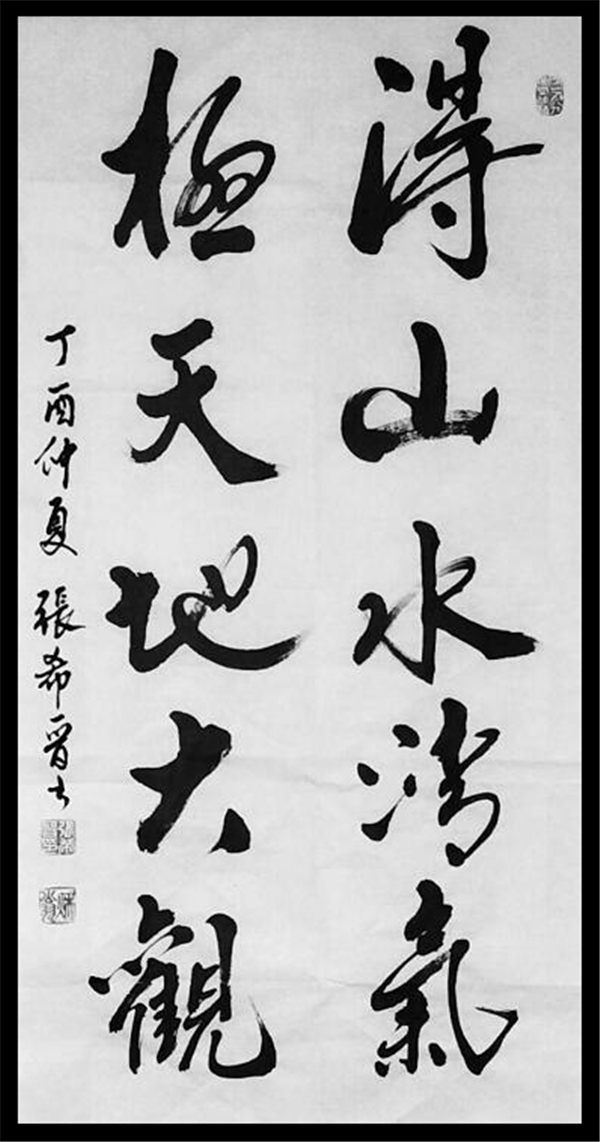 得山水清氣
極天地大觀
丁酉仲夏 張希晋书